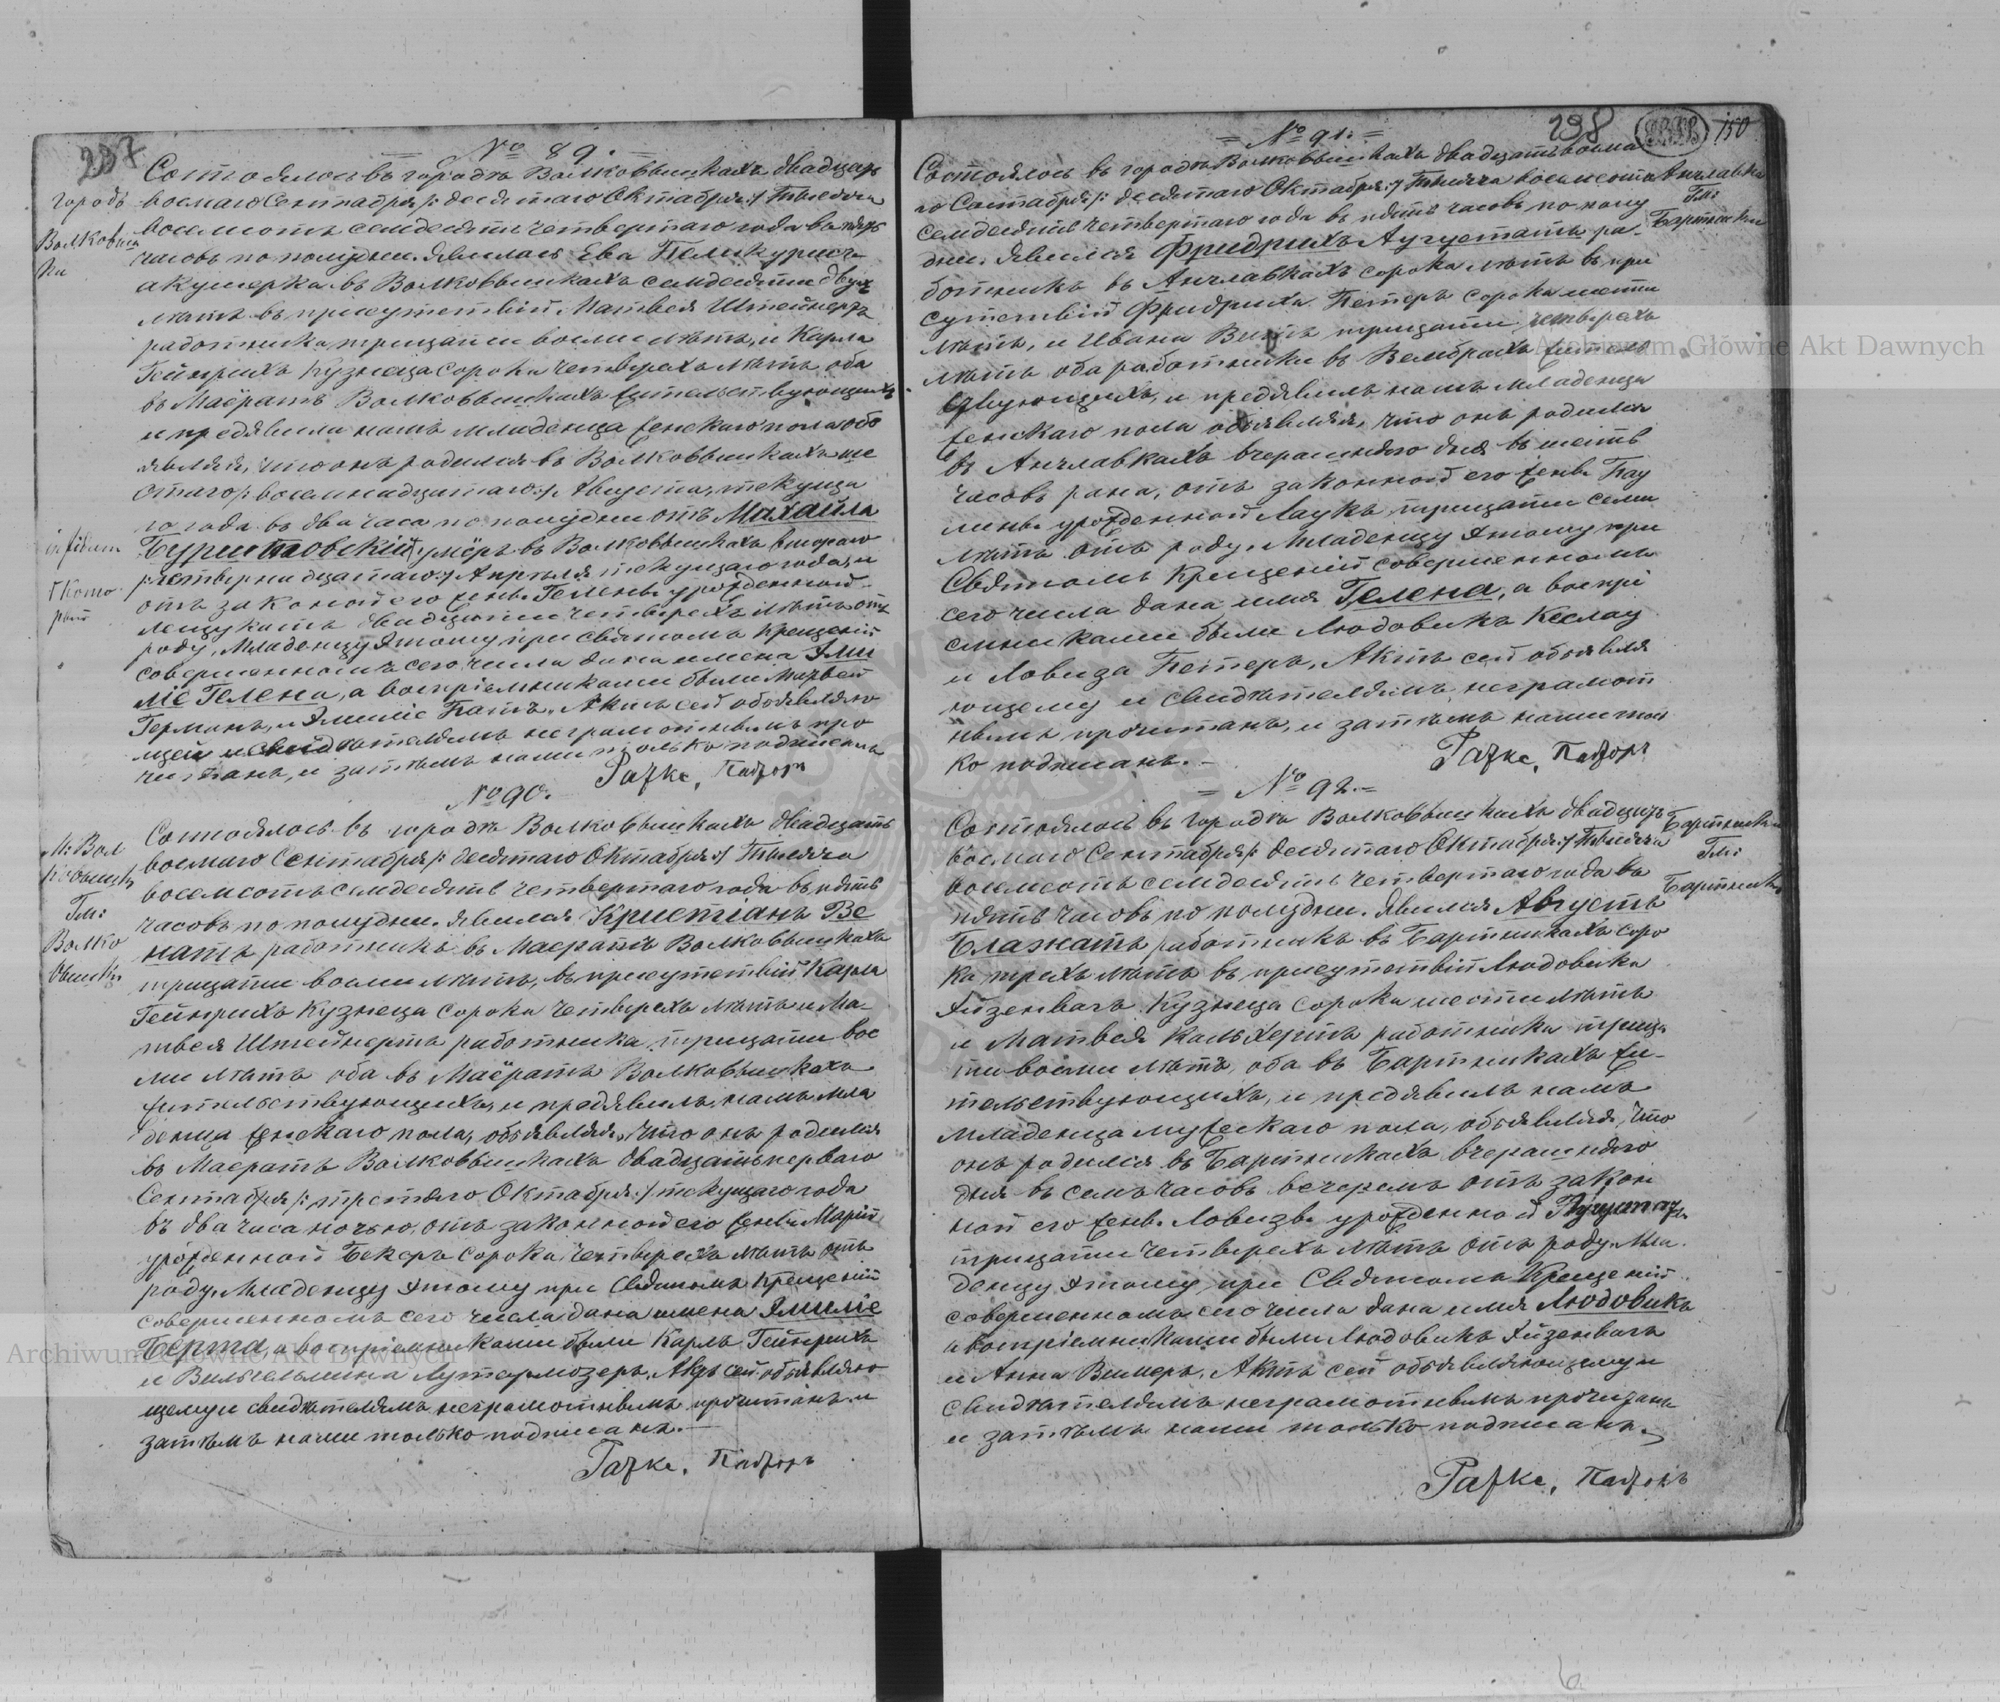 237
№ 89.
городъ
Волковыш
ки
Состоялось въ городѣ Волковышкахъ двадцать
восмаго Сентября /: десятаго Октября :/ тысяча
восемсотъ семдесять четвертаго года въ пять
часовъ по полудни. Явилась Ева Пеликурисъ
акушерка въ Волковышкахъ семдесяти двухъ
лѣтъ въ присутствіи Матвея Штейнерта
работника тридцати восми лѣтъ, и Карла
Гейнрихъ Кузнеца сорока четверехъ лѣтъ оба
въ Маератъ Волковышкахъ жительствующихъ
и предявили намъ младенца женскаго пола объ
являя, что онъ родился въ Волковышкахъ ше
стаго /: восемнадцатаго :/ Августа, текуща
го года въ два часа по полудни отъ Михаила
Буристовскій умеръ въ Волковышкахъ втораго
/: четвернадцатаго :/ Апрѣля текущаго года, и
in fidem
который
отъ законной его жены Гелены урожденной
двадцати четверехъ лѣтъ отъ
роду, Младенцу этому при святомъ крещеніи
совершенномъ сего числа дана имена Эми
ліе Гелена, а воспріемниками были Матвей
Германъ, и Эмиліе Патъ. Актъ сей объявляю
щей и свидѣтелямъ неграмотнымъ про
читанъ, и затѣмъ нами только подписанъ
Гажке, Пасторъ
№ 90.
М: Вол
ковышк
Гм:
Волко
вышк.
Состоялось въ городѣ Волковышкахъ двадцать
восмаго Сентября /: десятаго Октября :/ тысяча
восемсотъ семдесять четвертаго года въ пять
часовъ по полудни. Явился Кристіанъ Ве
натъ работникъ въ Маератъ Волковышкахъ
тридцати восми лѣтъ, въ присутствіи Карла
Гейнрихъ Кузнеца сорока четверехъ лѣтъ и Ма-
твея Штейнерта работника тридцати вос
ми лѣтъ оба въ Маератъ Волковышкахъ
жительствующихъ, и предявилъ намъ мла
денца женскаго пола, объявляя, что онъ родился
въ Маератъ Волковышкахъ двадцать перваго
Сентября /: третяго Октября :/ текущаго года
въ два часа ночью, отъ законной его жены Маріи
урожденной Бекеръ сорока четверехъ лѣтъ отъ
роду, Младенцу этому при Святомъ Крещеніи
совершенномъ сего числа дана имена Эмиліе
Берта, а воспріемниками были Карлъ Гейнрихъ
и Вильгельмина Лутермозеръ. Актъ сей объявляю
щему и свидѣтелямъ неграмотнымъ прочитанъ и
затѣмъ нами только подписанъ.—
Гажке, Пасторъ
238
150
= № 91. =
Анчлавки
Гм:
Бартники
Состоялось въ городѣ Волковышкахъ двадцать восма
го Сентября /: десятаго Октября :/ тысяча восемсотъ
семдесять четвертаго года въ пять часовъ по полу
дни. Явился Фридрихъ Аугустатъ ра-
ботникъ въ Анчлавкахъ сорока лѣтъ въ при
сутствіи Фридриха Петеръ сорока шести
лѣтъ, и Ивана Витъ тридцати четверехъ
лѣтъ оба работники въ Вембрахъ житель
ствующихъ, и предявилъ намъ младенца
женскаго пола объявляя, что онъ родился
въ Анчлавкахъ вчерашняго дня въ шесть
часовъ рана, отъ законной его жены Пау
лины урожденной Лаукъ тридцати семи
лѣтъ отъ роду. Младенцу этому при
Святомъ Крещеніи совершенномъ
сего числа дана имя Гелена, а воспрі
емниками были Людовикъ Кеслау
и Ловиза Петеръ. Актъ сей объявля
ющему и свидѣтелямъ неграмот
нымъ прочитанъ, и затѣмъ нами толь
ко подписанъ. —
Гажке, Пасторъ
= № 92. =
Бартники
Гм:
Бартники
Состоялось въ городѣ Волковышкахъ двадцать
восмаго Сентября /: десятаго Октября :/ тысяча
восемсотъ семдесять четвертаго года въ
пять часовъ по полудни. Явился Августъ
Блажатъ работникъ въ Бартникахъ соро
ка трехъ лѣтъ въ присутствіи Людовика
Эйзенвагъ Кузнеца сорока шести лѣтъ
и Матвея Кальхертъ работника тридца
ти восми лѣтъ, оба въ Бартникахъ жи-
тельствующихъ, и предявилъ намъ
младенца мужескаго пола, объявляя, что
онъ родился въ Бартникахъ вчерашняго
дня въ семь часовъ вечеромъ отъ закон
ной его жены Ловизы урожденной
тридцати четверехъ лѣтъ отъ роду. Мла
денцу этому при Святомъ Крещеніи
совершенномъ сего числа дана имя Людовикъ
а воспріемниками были Людовикъ Эйзенвагъ
и Анна Вимеръ. Актъ сей объявляющему и
свидѣтелямъ неграмотнымъ прочитанъ
и затѣмъ нами только подписанъ.
Гажке, Пасторъ
Archiwum Główne Akt Dawnych
Archiwum Główne Akt Dawnych